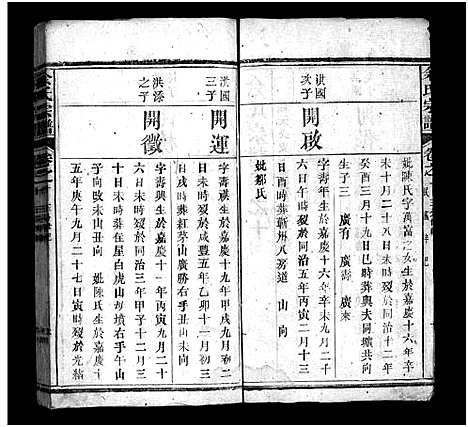 妣陳氏字萬富之女生於嘉慶十六年辛
未十月二十八未時歿於同治十二年
癸酉三月十九日巳時葬與夫同壙共向
生子三 廣有 廣壽 廣來
洪國
次子
開啟
字壽年生於嘉慶十六年辛未九月二十
日酉時葬蘄州八房道 山 向
妣鄒氏
洪國
三子
開運
字壽興生於嘉慶十九年甲戌九月初二
日未時歿於咸豐五年乙卯十一月初三
日戌時葬紅茅山廣勝右手丑山未向
洪添
之子
開徵
字壽漢生於嘉慶十一年丙寅九月二十
日未時歿於同治三年甲子十二月三
十日葬在屋白虎山却墳右手午山
子向改未山丑向 妣陳氏生於嘉慶十
五年庚午九月二十七日寅時歿於光緒
氏宗譜